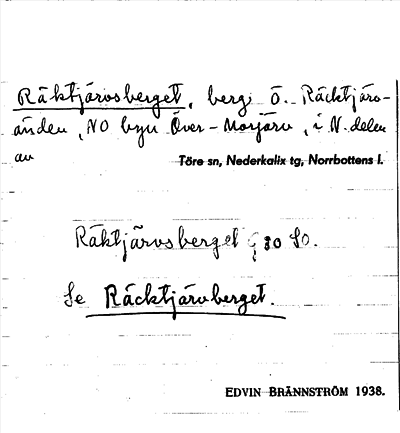 Räktjärvsberget, berg Ö. Räcktjärv-
änden, NO byn Över-Morjärv, i N. delen
av Töre sn, Nederkalix tg, Norrbottens l.
Räktjärvsberget 80 SO.
Se Räcktjärvberget.
EDVIN BRÄNNSTRÖM 1938.